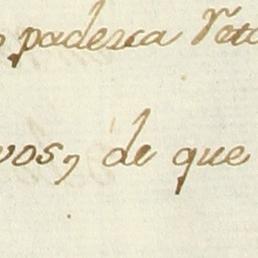 padezca
vos, de que